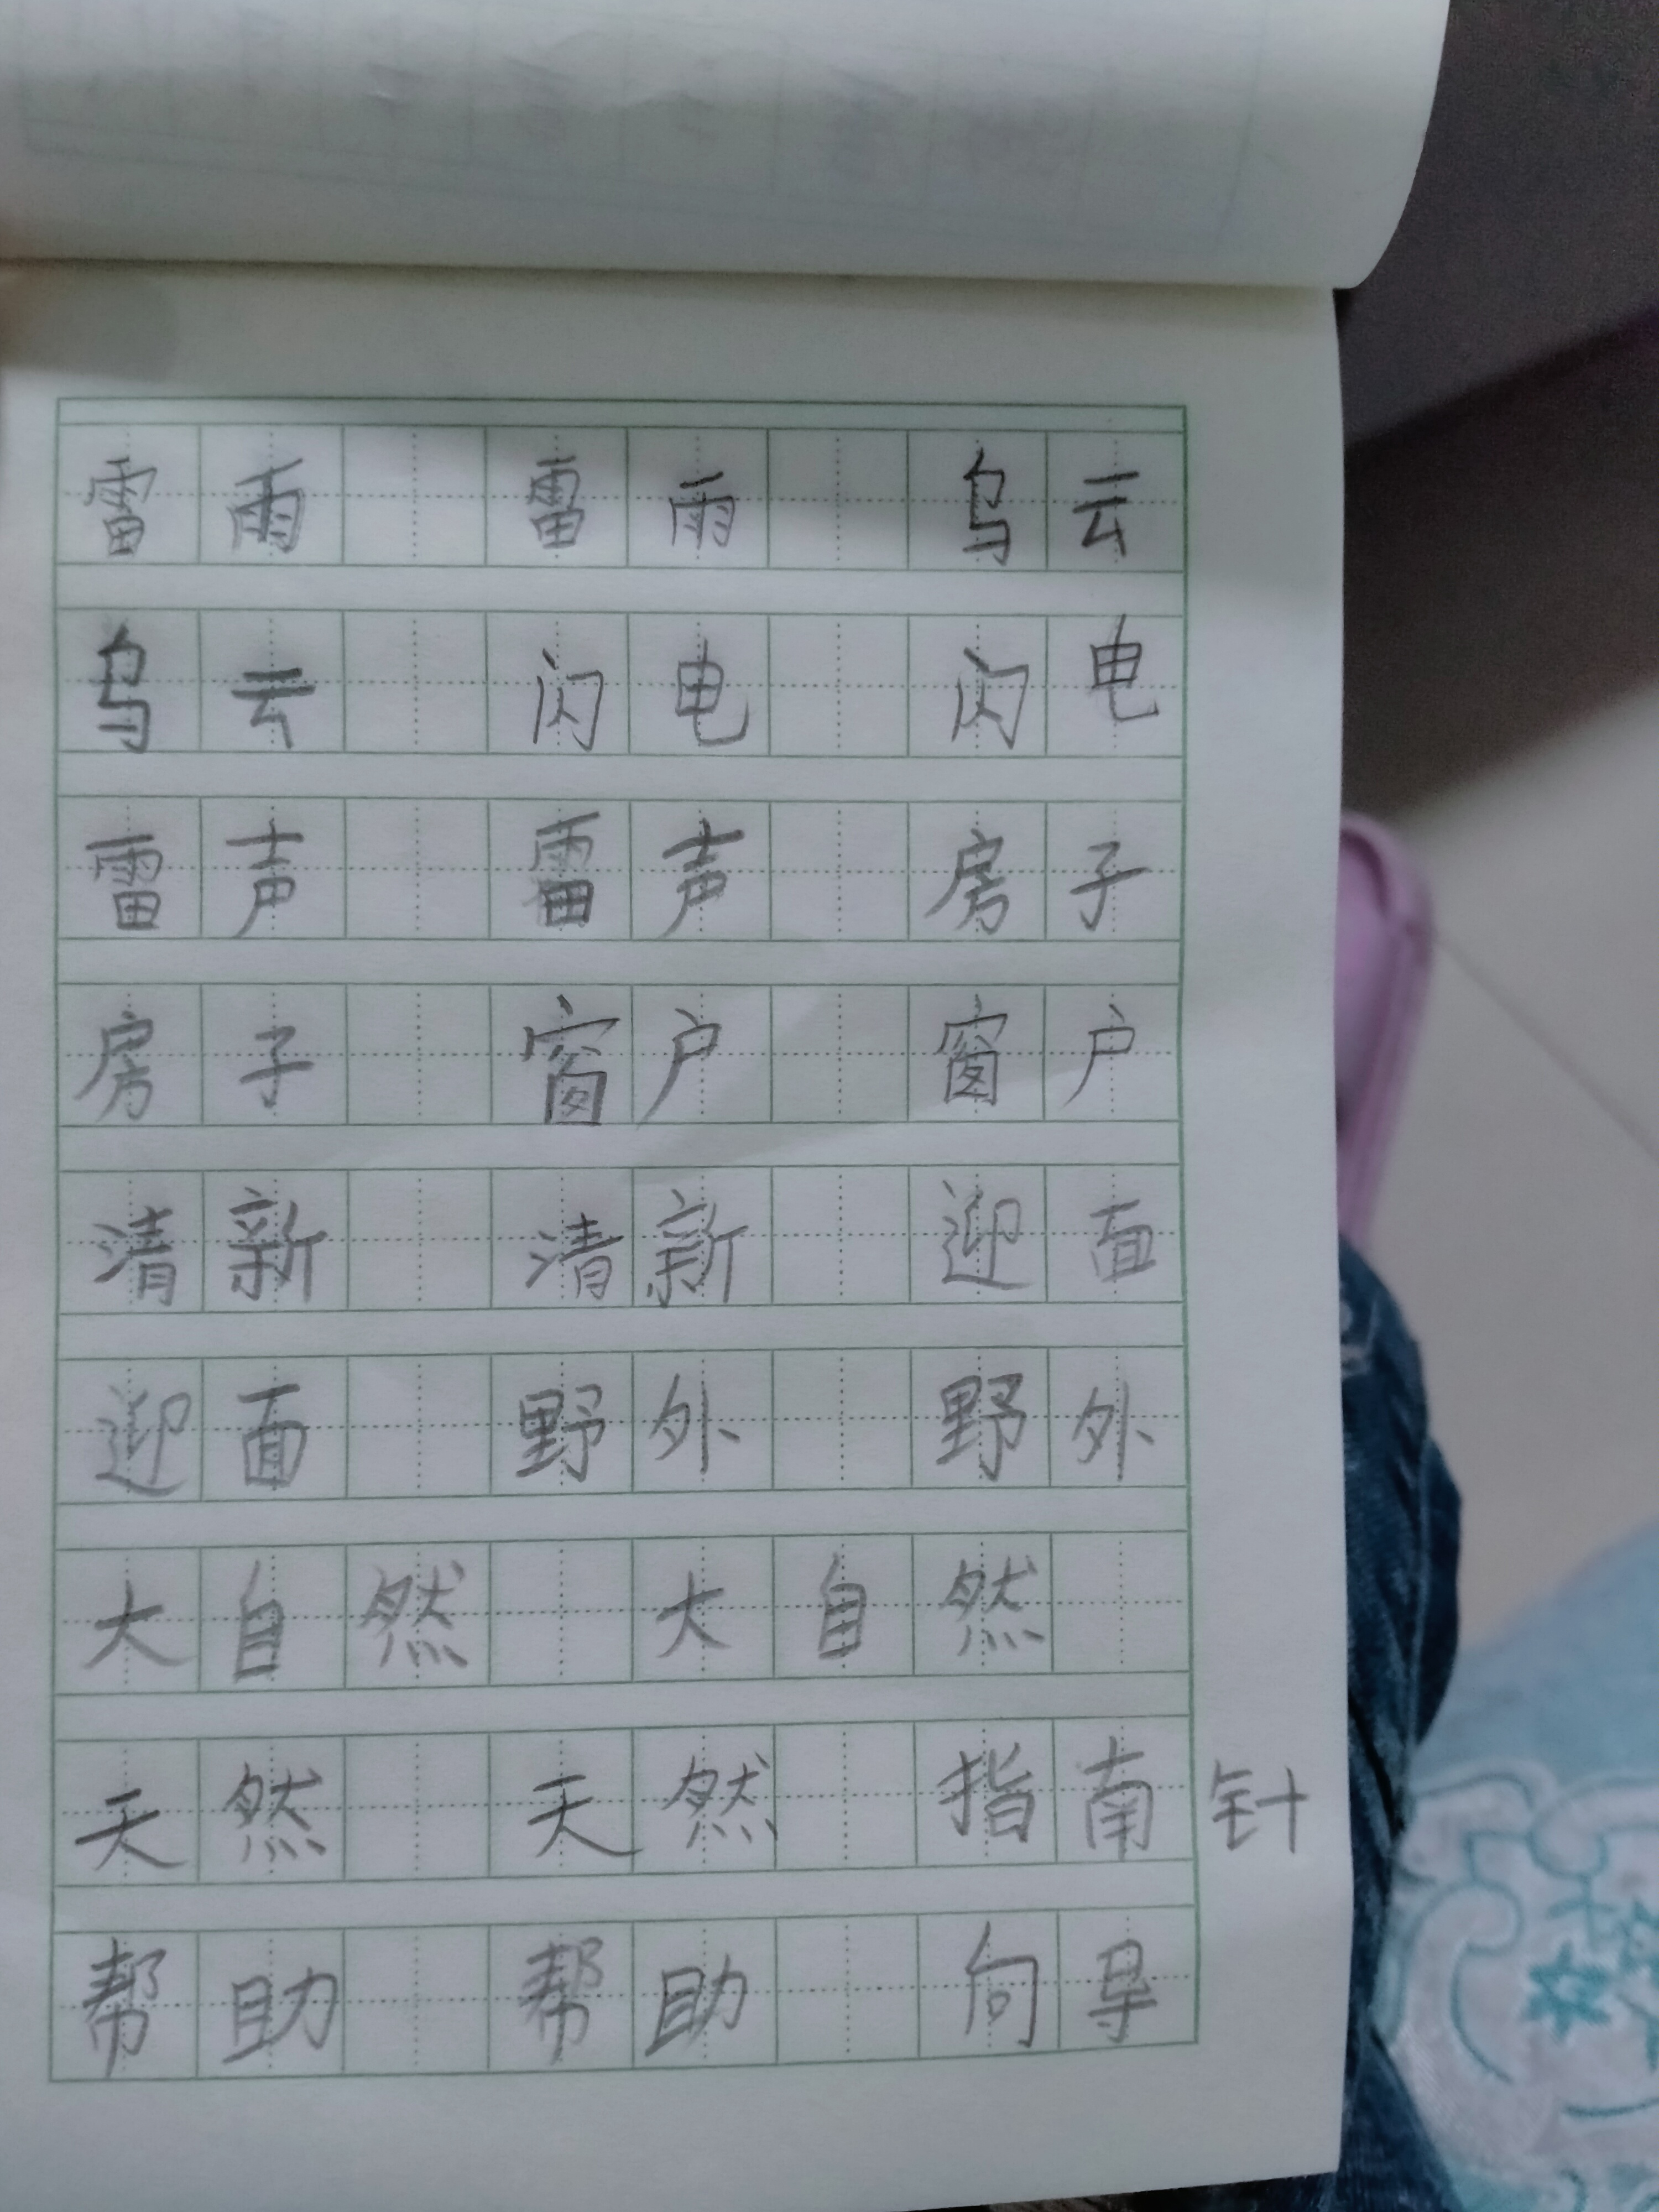 雷雨 雷雨 乌云
乌云 闪电 闪电
雷声 雷声 房子
房子 窗户 窗户
清新 清新 迎面
迎面 野外 野外
大自然 大自然
天然 天然 指南针
帮助 帮助 向导